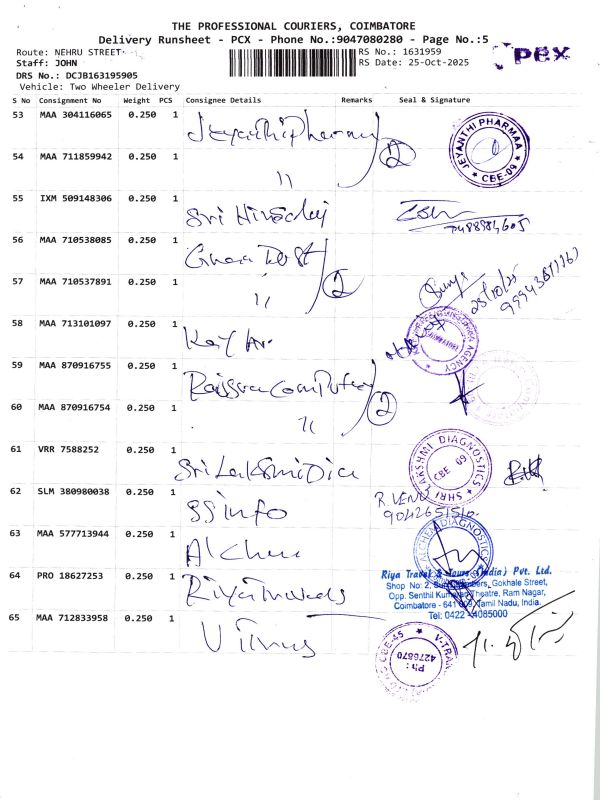 THE PROFESSIONAL COURIERS, COIMBATORE
Delivery Runsheet - PCX - Phone No.:9047080280 - Page No.:5
Route: NEHRU STREET
RS No.: 1631959
Staff: JOHN
RS Date: 25-Oct-2025
pex
DRS No.: DCJB163195905
Vehicle: Two Wheeler Delivery
S No Consignment No Weight PCS Consignee Details Remarks Seal & Signature
53 MAA 304116065 0.250 1 Jeyanthi Pharmy
JEYANTHI PHARMAA
* CBE-09 *
54 MAA 711859942 0.250 1 " 2
55 IXM 509148306 0.250 1 Sri
56 MAA 710538085 0.250 1
57 MAA 710537891 0.250 1 " 2
25/10/25
58 MAA 713101097 0.250 1
AGENCY
59 MAA 870916755 0.250 1
60 MAA 870916754 0.250 1 " 2
61 VRR 7588252 0.250 1 Sri Lakshmi Dia
SHRI LAKSHMI DIAGNOSTICS
CBE 09
62 SLM 380980038 0.250 1 SS info
R.VENU
9042651510
63 MAA 577713944 0.250 1 Alchem
ALCHEM DIAGNOSTICS
64 PRO 18627253 0.250 1 Riya travels
Riya Travel & Tours (India) Pvt. Ltd.
Shop No: 2, Gokhale Street,
Opp. Senthil Kumaran Theatre, Ram Nagar,
Coimbatore - 641 009, Tamil Nadu, India.
Tel: 0422 - 4085000
65 MAA 712833958 0.250 1 V Trans
CBE-45 * V-TRANS
Ph :
4276870